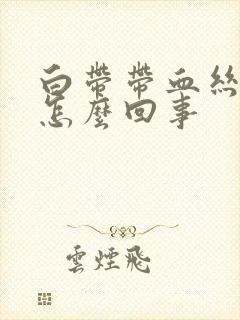 白帶帶血絲
怎麼回事
雲煙飛